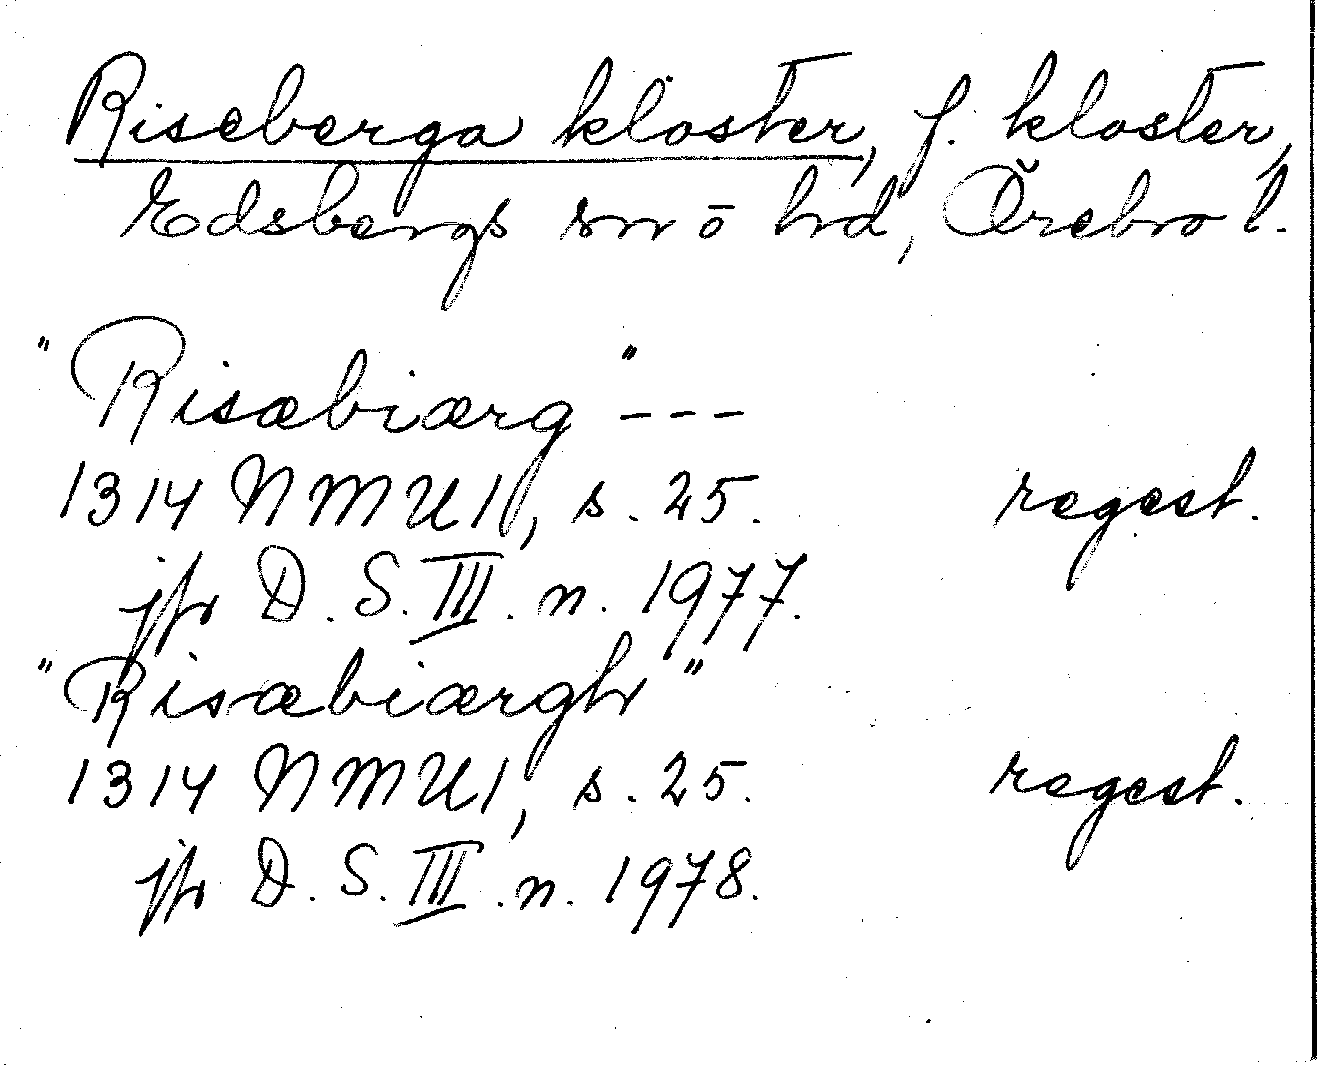 Riseberga kloster, f. kloster,
Edsbergs sn o hd, Örebro l.
"Risæbiærg" ---
1314 NMU1, s. 25. regest.
jfr D. S. III. n. 1977.
"Risæbiærgh"
1314 NMU1, s. 25. regest.
jfr D. S. III. n. 1978.